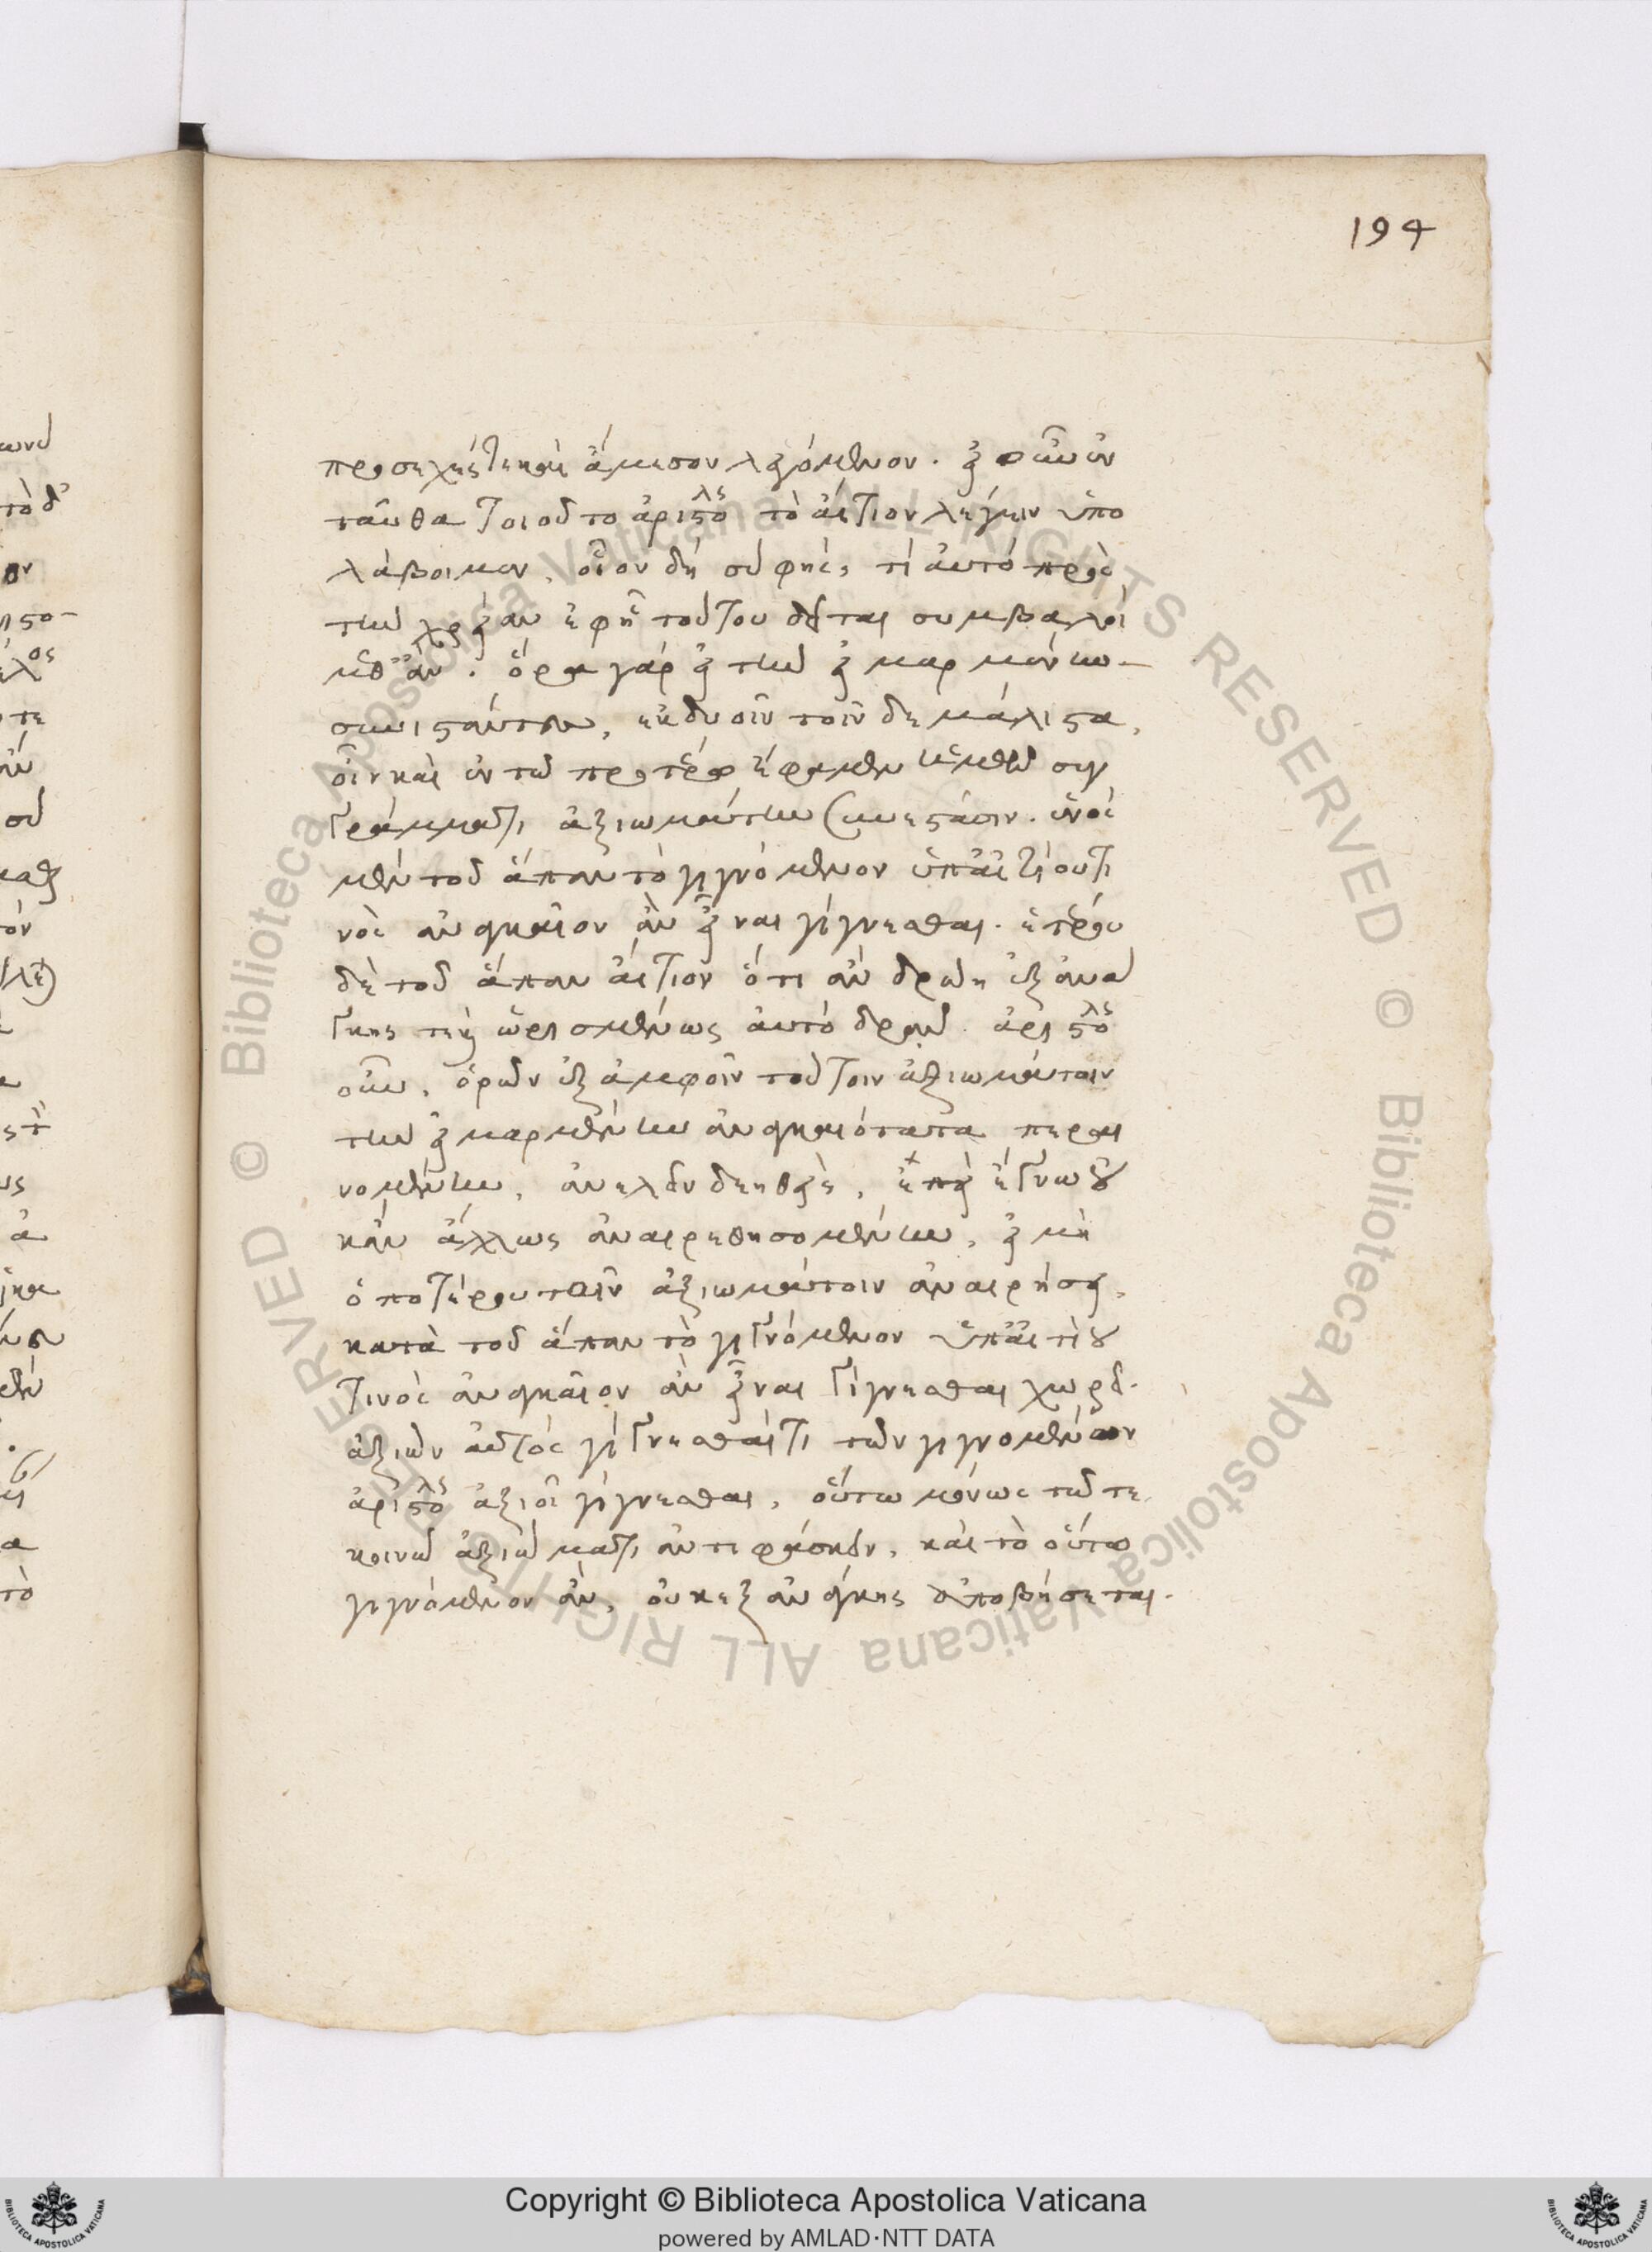 194
προσεχές τε καὶ ἄμεσον λεγόμενον. εἰ οὖν ἐν
ταῦθα τοιοῦτο ἀριστολς τὸ αἴτιον λέγειν ὑπο
λάβοιμεν, οἷον δὴ σὺ φής, τί αὐτὸ πρὸς
τὴν χρείαν ἐφ' ᾗ τούτου δεῖται συμβαλοί
μεθ' ἄν. ὅρα γὰρ εἰ τὴν εἱμαρμένην
συνιστάντων, ἐκ δυοῖν τοῖν δε μάλιστα,
οἷν καὶ ἐν τῷ προτέρῳ ἔφαμεν ἡμεῖς συγ
γράμματι ἀξιωμάτων συνεστάσιν. ἑνὸς
μὲν τοῦ ἅπαν τὸ γιγνόμενον ὑπ' αἰτίου τι
νὸς ἀναγκαῖον ἂν εἶναι γίγνεσθαι. ἑτέρου
δὲ τοῦ ἅπαν αἴτιον ὅτι ἂν δρῴη ἐξ ἀνάγ
κης τε καὶ ὡρισμένως αὐτὸ δρᾶν. ἀριστολς
οὖν, ὁρῶν ἐξ ἀμφοῖν τούτοιν ἀξιωμάτοιν
τὴν εἱμαρμένην ἀναγκαιότατα περαι
νομένην, ἀνελεῖν δεηθείς, ἐπεὶ ἔγνω οὐ
κἂν ἄλλως ἀναιρεθησομένην, εἰ μὴ
ὁποτέρου τοῖν ἀξιωμάτοιν ἀναιρήσει,
κατὰ τοῦ ἅπαν τὸ γιγνόμενον ὑπ' αἰτίου
τινὸς ἀναγκαῖον ἂν εἶναι γίγνεσθαι χωρεῖ.
ἀξιῶν αὐτὸς γίγνεσθαί τι τῶν γιγνομένων
ἀριστολς ἀξιοῖ γίγνεσθαι, οὕτω μόνως τῷ τε
κοινῷ ἀξιώματι ἀντιφάσκειν, καὶ τὸ οὕτω
γιγνόμενον ἂν, οὐκ ἐξ ἀνάγκης ἀποβήσεται.
Copyright © Biblioteca Apostolica Vaticana
powered by AMLAD·NTT DATA